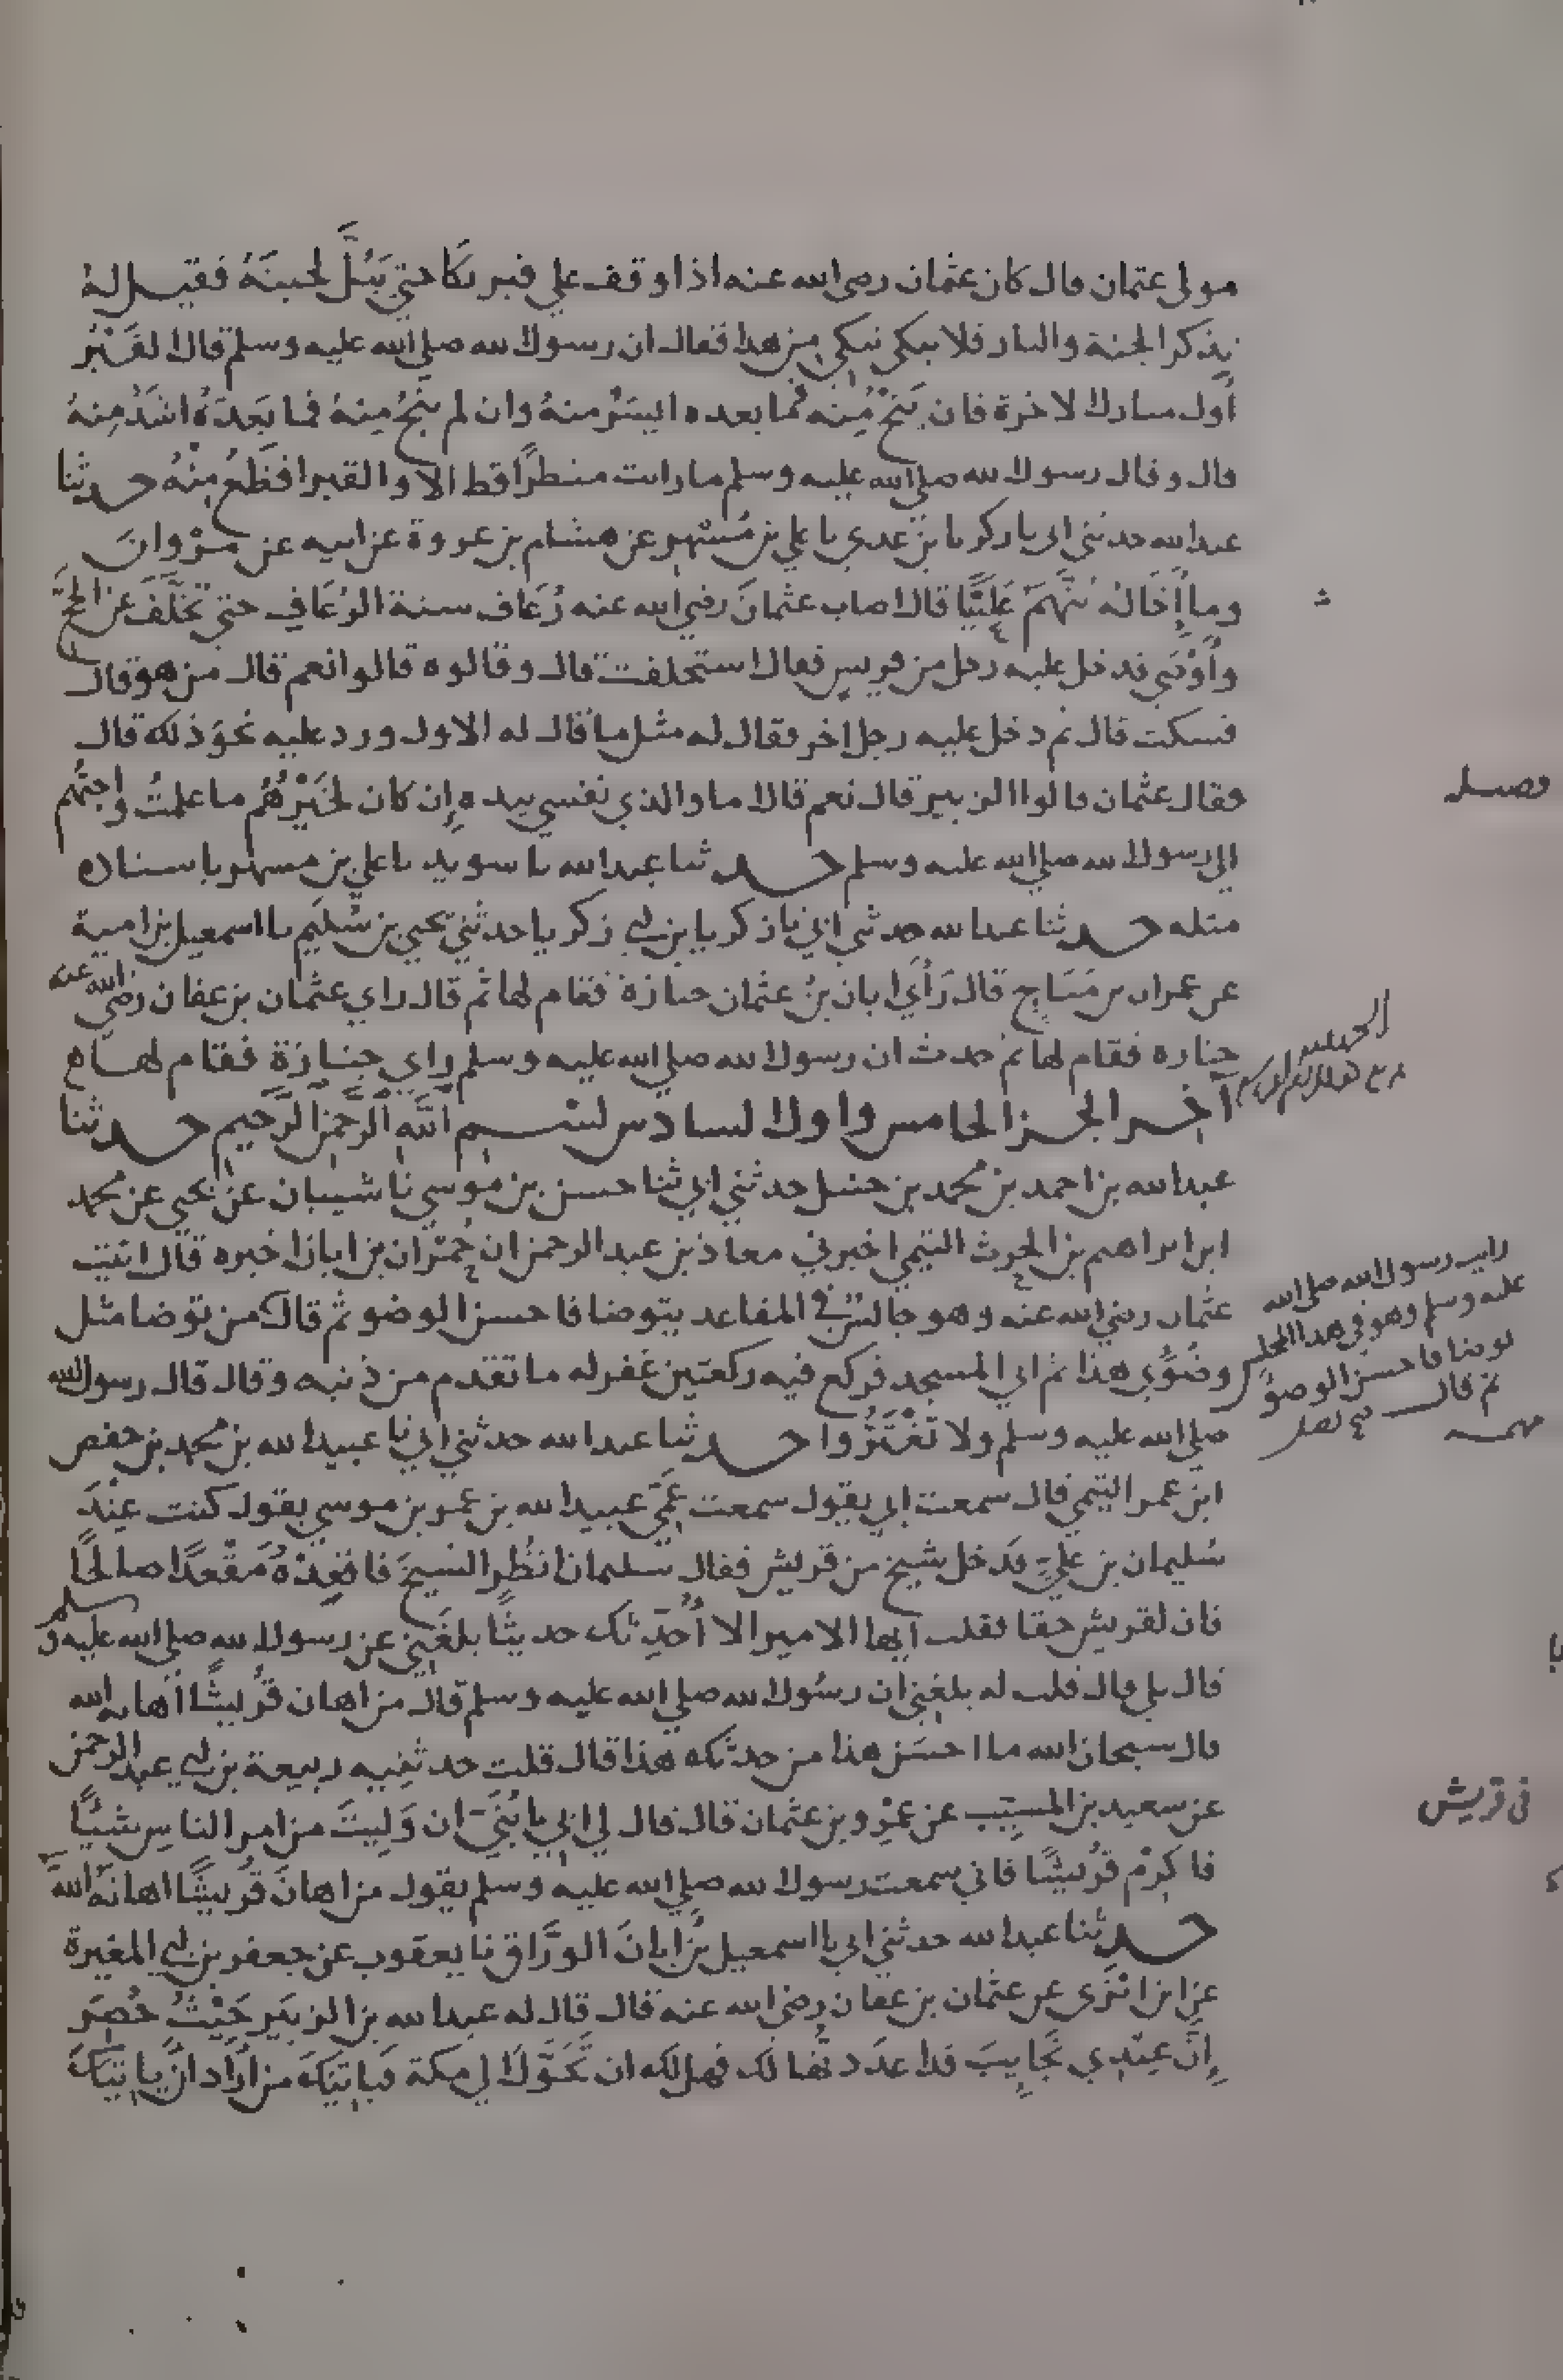 مولى عثمان قال كان عثمان رضي الله عنه اذا وقف علي قبر بكا حتي يَبُلَّ لحيتَهُ فقيل لهُ
يذكر الجنة والنار فلا تبكي تبكي من هذا فقال ان رسول الله صلي الله عليه وسلم قال القَبْرُ
اول منازل الاخرة فان يَنْجُ مِنه فما بعده ايسَرُ منهُ وان لم يَنْجُ مِنهُ فما بَعدَهُ اشَدُّ مِنهُ
قال وقال رسول الله صلي الله عليه وسلم ما رايت منظراً قط الا والقبر افظَعُ مِنْهُ حدثنا
عبد الله حدثني ابي نا زكريا بن عدي نا علي بن مُسْهِرٍ عن هشام بن عروة عن ابيه عن مَرْوانَ
وما إِخَالهُ يُتَّهَمُ عَلَيْنَا قال اصاب عثمانَ رضي الله عنه رُعَاف سنة الرُعَافِ حتي تَخَلَّفَ عن الحَجِّ
وأَوْصَي فدخل عليه رجل من قريش فقال استخلف قال وقالوه قالوا نعم قال من هو قال
فسكت قال ثم دخل عليه رجل اخر فقال له مثل ما قال له الاول ورد عليه نحوَ ذلك قال
فقال عثمان قالوا الزبير قال نعم قال اما والذي نفسي بيده إِن كان لخَيْرَهُم ما علمتُ واحبَّهُم
الي رسول الله صلي الله عليه وسلم حدثنا عبد الله نا سويد نا علي بن مسهر باسناده
مثله حدثنا عبد الله حدثني ابي نا زكريا بن ابي زكريا حدثني يحيي بن سُلَيم نا اسمعيل بن امية
عن عمران بن مَنَّاحٍ قال رَأَي ابان بنُ عثمان جنازة فقام لها ثم قال راي عثمان بن عفان رضي الله عنه
جنازه فقام لها ثم حدث ان رسول الله صلي الله عليه وسلم راي جنازة فقام لها
آخر الجزء الخامس واول السادس بسم اللَّهِ الرَّحمنِ الرَّحيمِ حدثنا
عبد الله بن احمد بن محمد بن حنبل حدثني ابي ثنا حسن بن موسي نا شيبان عن يحيي عن محمد
ابن ابراهيم بن الحرث التيمي اخبرني معاذ بن عبد الرحمن ان حُمْرَان بن ابان اخبره قال اتيت
عثمان رضي الله عنه وهو جالسٌ في المقاعد يتوضا فاحسن الوضو ثم قال من توضا مثل
رايت رسول الله صلي الله
عليه وسلم وهو في هذا المجلس
توضا فاحسن الوضوُ
ثم قال
وضُوُّي هذا ثم اتي المسجد فركع فيه ركعتين غفر له ما تقدم من ذنبه وقال قال رسول الله
صلي الله عليه وسلم ولا تَغْتَرُّوا حدثنا عبد الله حدثني ابي نا عبيد الله بن محمد بن حفص
ابن عمر التيمي قال سمعت ابي يقول سمعت عَمِّي عبيد الله بن عمر بن موسي يقول كنت عِنْدَ
سُليمان بن عليٍّ فدخل شيخ من قريش فقال سليمان انظُرِ الشيخَ فاقعِدْهُ مَقْعَدًا صالحًا
فان لقريش حقا فقلت ايها الامير الا أُحَدِّثك حديثًا بلغَنِي عن رسول الله صلي الله عليه وسلم
قال بلي قال قلت له بلغني ان رسُول الله صلي الله عليه وسلم قال من اهان قُريشًا أَهانه الله
قال سبحان الله ما احسَنَ هذا من حدثك هذا قال قلت حدثنيه ربيعة بن ابي عبد الرحمن
في قريش
عن سعيد بن المسيِّب عن عَمْرو بن عثمان قال قال لي ابي يا بُنَيَّ ان وَلِيتَ من امر الناس شيئًا
فاكرِمْ قُريشًا فاني سمعت رسول الله صلي الله عليه وسلم يقول من اهانَ قُريشًا اهانَهُ اللهُ
حدثنا عبد الله حدثني ابي نا اسمعيل بنُ ابانَ الورَّاق نا يعقوب عن جعفر بن ابي المغيرة
عن ابن ابْزَى عن عثمان بن عفان رضي الله عنه قال قال له عبد الله بن الزبير حَيْثُ حُصِرَ
إِنَّ عِنْدِي نَجَايِبَ قد اعدَدتُّها لك فهل لك ان تَحَوَّلَ الي مكة فياتيَكَ من ارَادَ ان ياتيَكَ